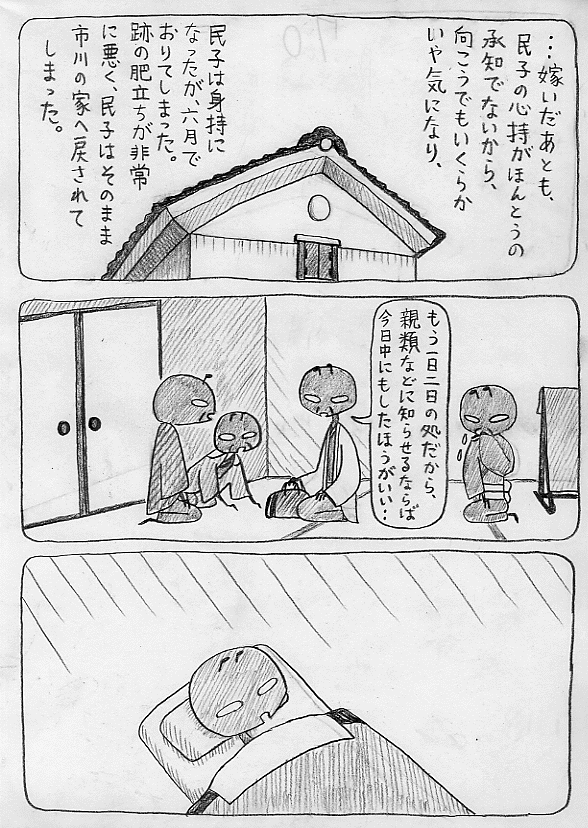 …嫁いだあとも、
民子の心持がほんとうの
承知でないから、
向こうでもいくらか
いや気になり、
民子は身持に
なったが、六月で
おりてしまった。
跡の肥立ちが非常
に悪く、民子はそのまま
市川の家へ戻されて
しまった。
もう一日二日の処だから、
親類などに知らせるならば
今日中にもしたほうがいい…